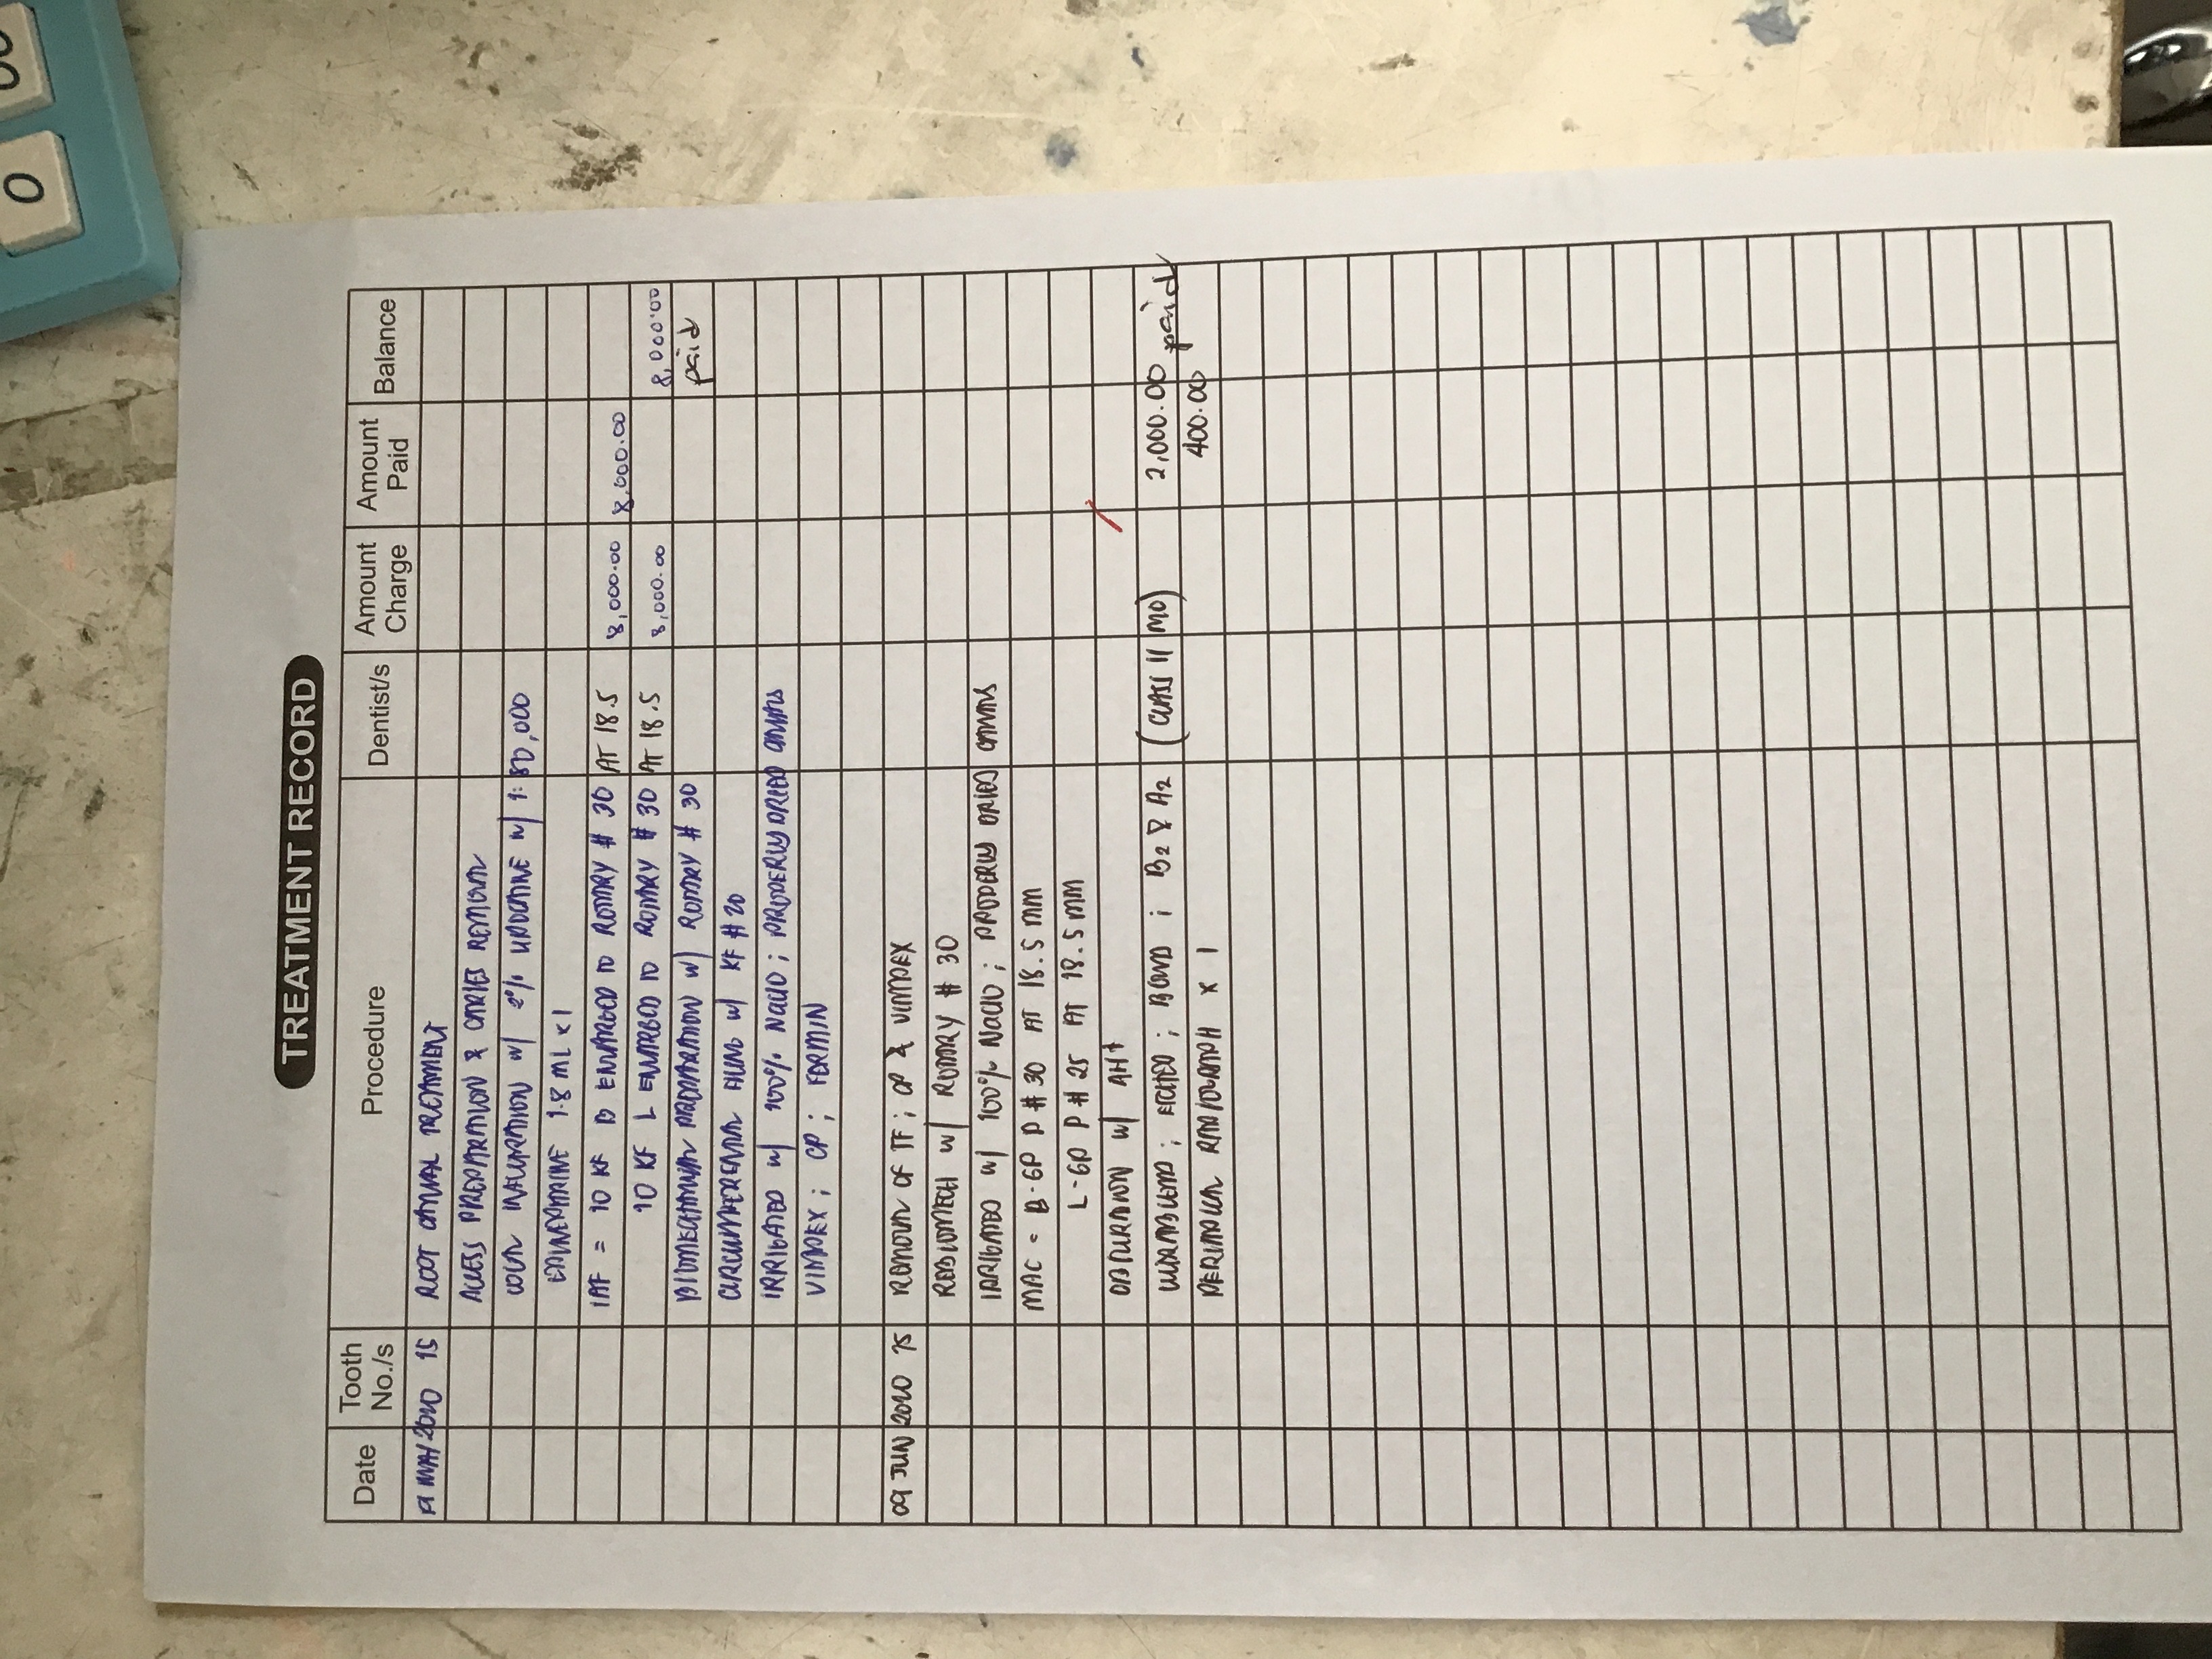 TREATMENT RECORD
Date Tooth No./s Procedure Dentist/s Amount Charge Amount Paid Balance
2020 15 ROOT CANAL TREATMENT
ACCESS PREPARATION & CARIES REMOVAL
LOCAL INFILTRATION w/ 2% LIDOCAINE w/ 1:80,000
EPINEPHRINE 1.8 ML x 1
IAF = 10 KF B ENLARGED TO ROTARY # 30 AT 18.5 8,000.00 8,000.00
10 KF L ENLARGED TO ROTARY # 30 AT 18.5 8,000.00 8,000.00
BIOMECHANICAL PREPARATION w/ ROTARY # 30 paid
CIRCUMFERENTIAL FILING w/ KF # 20
IRRIGATED w/ 100% NaClO ; PROPERLY DRIED CANALS
VITAPEX ; CP ; FERMIN
09 JUN 2020 15 REMOVAL OF TF ; CP & VITAPEX
REBIOMECH w/ ROTARY # 30
IRRIGATED w/ 100% NaClO ; PROPERLY DRIED CANALS
MAC = B - GP P # 30 AT 18.5 MM
L - GP P # 25 AT 18.5 MM
OBTURATION w/ AH+
; ETCHED ; BOND ; B2 & A2 (CLASS II MO) 2,000.00 paid
PERIAPICAL RADIOGRAPH x 1 400.00
0